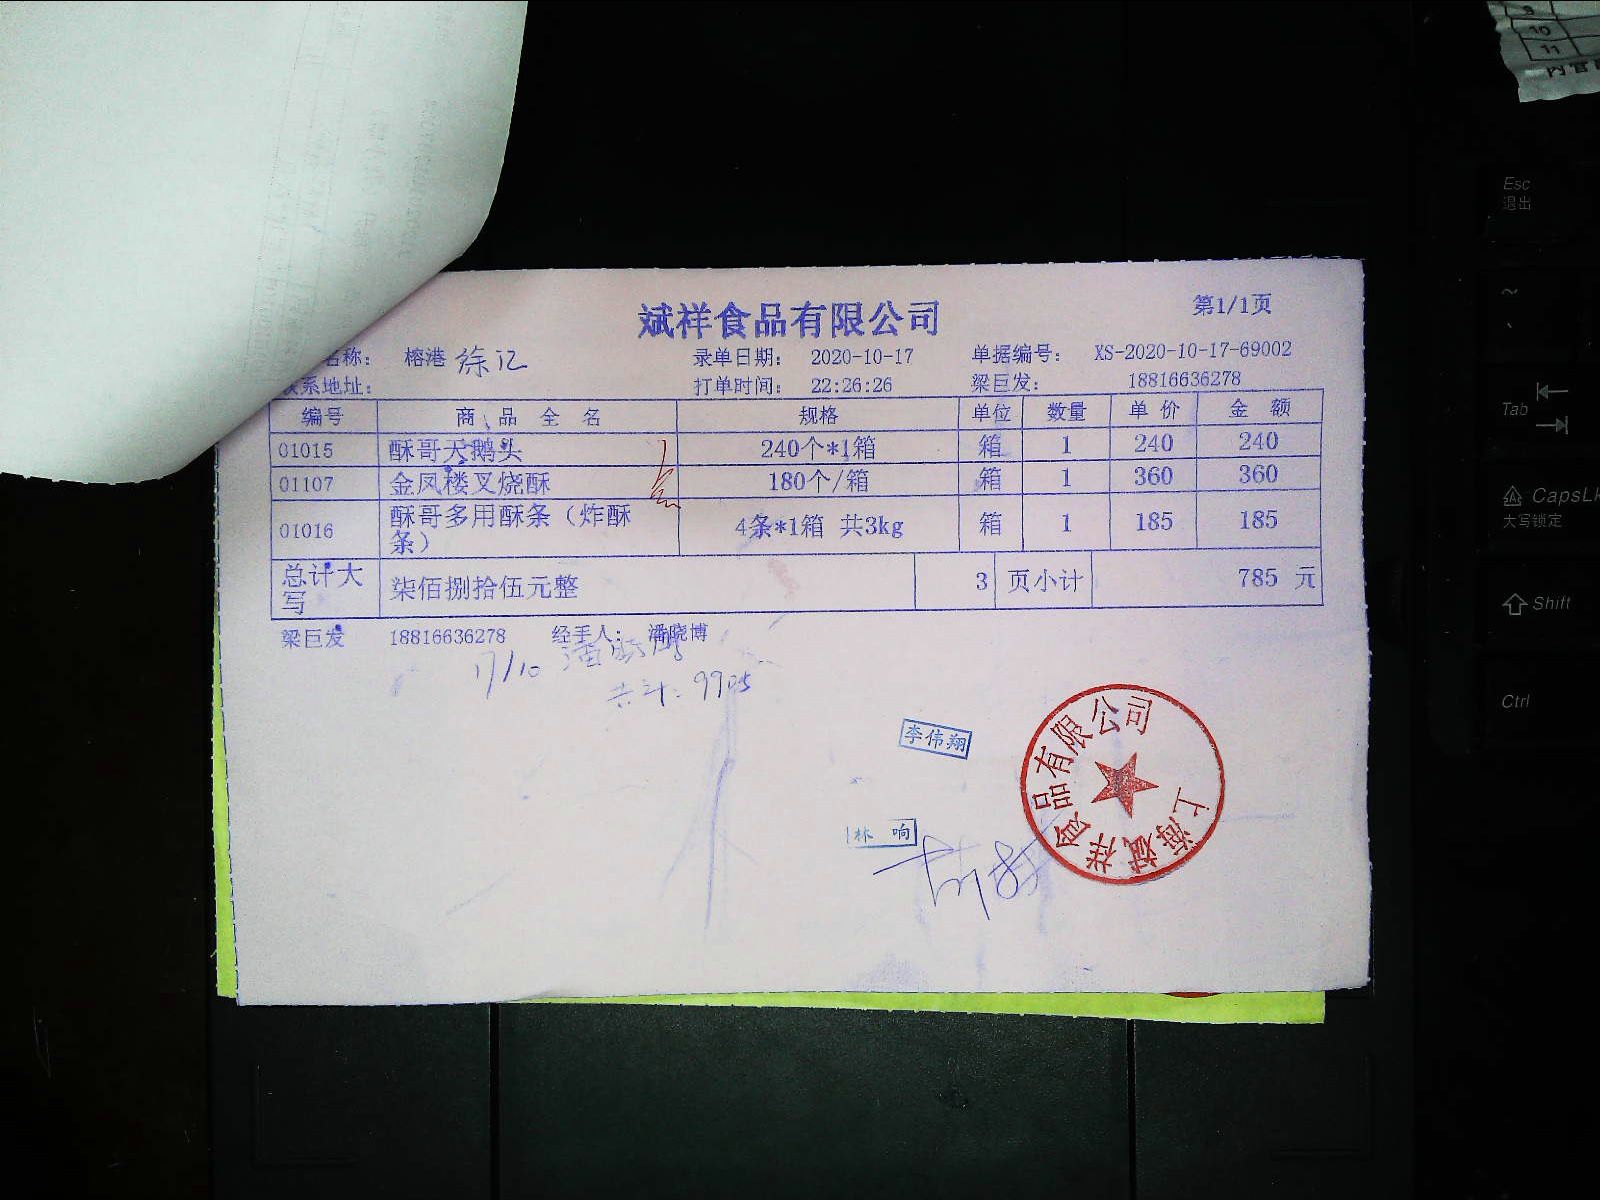 斌祥食品有限公司
第1/1页
名称： 榕港 徐记 录单日期： 2020-10-17 单据编号： XS-2020-10-17-69002
联系地址： 打单时间： 22:26:26 梁巨发： 18816636278
编号 商 品 全 名 规格 单位 数量 单 价 金 额
01015 酥哥天鹅头 240个*1箱 箱 1 240 240
01107 金凤楼叉烧酥 180个/箱 箱 1 360 360
01016 酥哥多用酥条（炸酥条） 4条*1箱 共3kg 箱 1 185 185
总计大写 柒佰捌拾伍元整 3 页小计 785 元
梁巨发 18816636278 经手人： 潘晓博
17/10 潘晓博
共计：9905
李伟翔
林 响
上海斌祥食品有限公司
9
10
11
Esc
退出
~
Tab
CapsLk
大写锁定
Shift
Ctrl